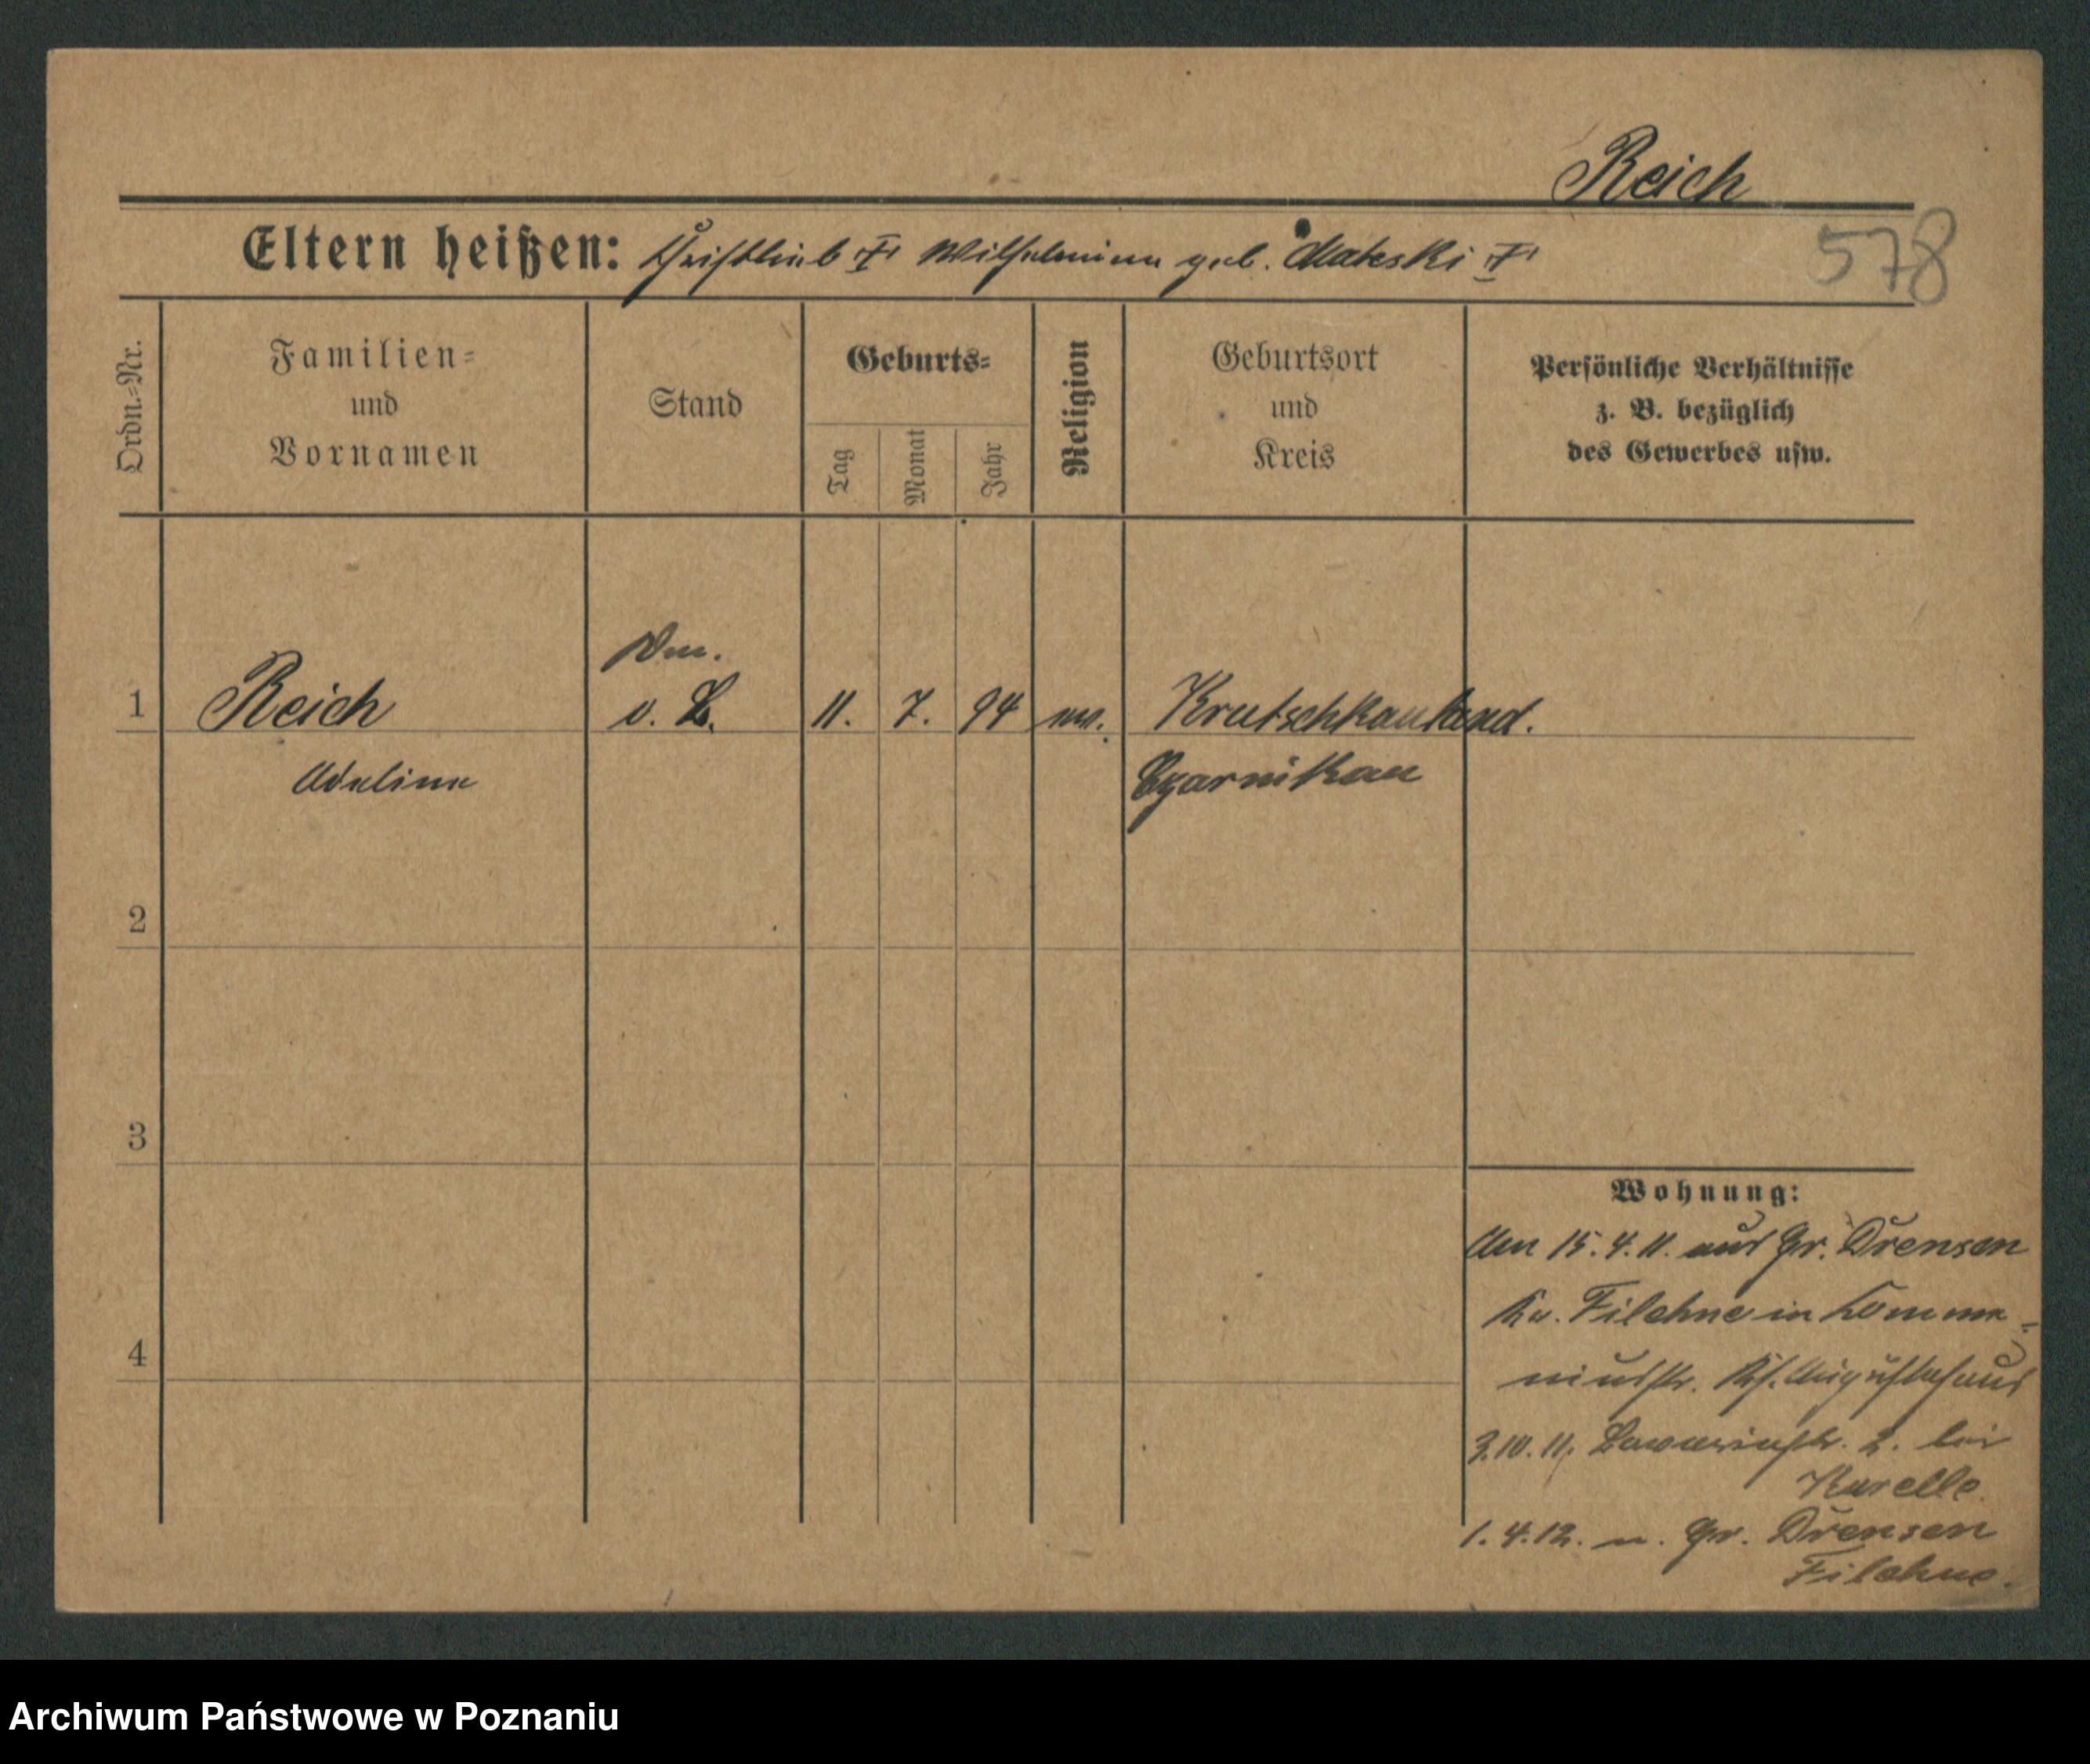 Reich
578
Eltern heißen: Christlieb † Wilhelmine geb. Mateski †
Ordn.=Nr.
Familien=
und
Vornamen
Stand
Geburts=
Tag
Monat
Jahr
Religion
Geburtsort
und
Kreis
Persönliche Verhältnisse
z. B. bezüglich
des Gewerbes usw.
1 Reich v. L. 11. 7. 94 ev. Krutschkauland.
Adeline Czarnikau
2
3
4
Wohnung:
Am 15.4.11. aus Gr. Drensen
Kr. Filehne in
niusstr. Augustahaus
3.10.11. 2. bei
1.4.12. n. Gr. Drensen
Filehne.
Archiwum Państwowe w Poznaniu